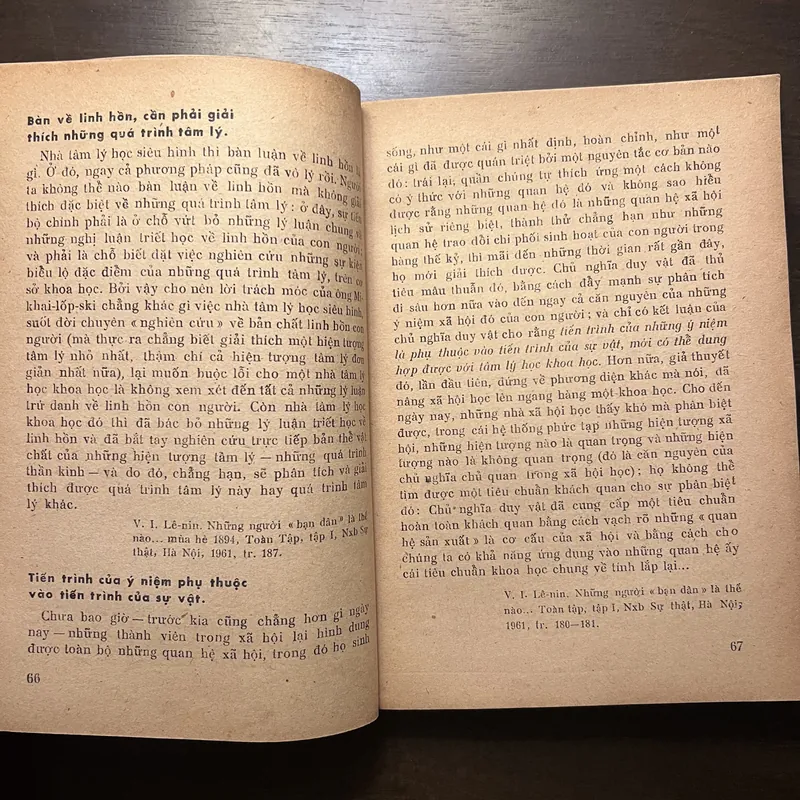 Bàn về linh hồn, cần phải giải
thích những quá trình tâm lý.
Nhà tâm lý học siêu hình thì bàn luận về linh hồn là
gì. Ở đó, ngay cả phương pháp cũng đã vô lý rồi. Người
ta không thể nào bàn luận về linh hồn mà không giải
thích đặc biệt về những quá trình tâm lý : ở đây, sự tiến
bộ chính phải là ở chỗ vứt bỏ những lý luận chung và
những nghị luận triết học về linh hồn của con người;
và phải là chỗ biết đặt việc nghiên cứu những sự kiện
biểu lộ đặc điểm của những quá trình tâm lý, trên cơ
sở khoa học. Bởi vậy cho nên lời trách móc của ông Mi-
khai-lốp-ski chẳng khác gì việc nhà tâm lý học siêu hình,
suốt đời chuyên «nghiên cứu» về bản chất linh hồn con
người (mà thực ra chẳng biết giải thích một hiện tượng
tâm lý nhỏ nhất, thậm chí cả hiện tượng tâm lý đơn
giản nhất nữa), lại muốn buộc lỗi cho một nhà tâm lý
học khoa học là không xem xét đến tất cả những lý luận
trứ danh về linh hồn con người. Còn nhà tâm lý học
khoa học đó thì đã bác bỏ những lý luận triết học về
linh hồn và đã bắt tay nghiên cứu trực tiếp bản thể vật
chất của những hiện tượng tâm lý — những quá trình
thần kinh — và do đó, chẳng hạn, sẽ phân tích và giải
thích được quá trình tâm lý này hay quá trình tâm
lý khác.
V. I. Lê-nin. Những người «bạn dân» là thế
nào... mùa hè 1894, Toàn Tập, tập I, Nxb Sự
thật, Hà Nội, 1961, tr. 187.
Tiến trình của ý niệm phụ thuộc
vào tiến trình của sự vật.
Chưa bao giờ — trước kia cũng chẳng hơn gì ngày
nay — những thành viên trong xã hội lại hình dung
được toàn bộ những quan hệ xã hội, trong đó họ sinh
66
sống, như một cái gì nhất định, hoàn chỉnh, như một
cái gì đã được quán triệt bởi một nguyên tắc cơ bản nào
đó : trái lại, quần chúng tự thích ứng một cách không
có ý thức với những quan hệ đó và không sao hiểu
được rằng những quan hệ đó là những quan hệ xã hội
lịch sử riêng biệt, thành thử chẳng hạn như những
quan hệ trao đổi chi phối sinh hoạt của con người trong
hàng thế kỷ, thì mãi đến những thời gian rất gần đây,
họ mới giải thích được. Chủ nghĩa duy vật đã thủ
tiêu mâu thuẫn đó, bằng cách đẩy mạnh sự phân tích
đi sâu hơn nữa vào đến ngay cả căn nguyên của những
ý niệm xã hội đó của con người; và chỉ có kết luận của
chủ nghĩa duy vật cho rằng tiến trình của những ý niệm
là phụ thuộc vào tiến trình của sự vật, mới có thể dung
hợp được với tâm lý học khoa học. Hơn nữa, giả thuyết
đó, lần đầu tiên, đứng về phương diện khác mà nói, đã
nâng xã hội học lên ngang hàng một khoa học. Cho đến
ngày nay, những nhà xã hội học thấy khó mà phân biệt
được, trong cái hệ thống phức tạp những hiện tượng xã
hội, những hiện tượng nào là quan trọng và những hiện
tượng nào là không quan trọng (đó là căn nguyên của
chủ nghĩa chủ quan trong xã hội học) ; họ không thể
tìm được một tiêu chuẩn khách quan cho sự phân biệt
đó : Chủ nghĩa duy vật đã cung cấp một tiêu chuẩn
hoàn toàn khách quan bằng cách vạch rõ những «quan
hệ sản xuất» là cơ cấu của xã hội và bằng cách cho
chúng ta có khả năng ứng dụng vào những quan hệ ấy
cái tiêu chuẩn khoa học chung về tính lắp lại...
V. I. Lê-nin. Những người «bạn dân» là thế
nào... Toàn tập, tập I, Nxb Sự thật, Hà Nội,
1961, tr. 180—181.
67